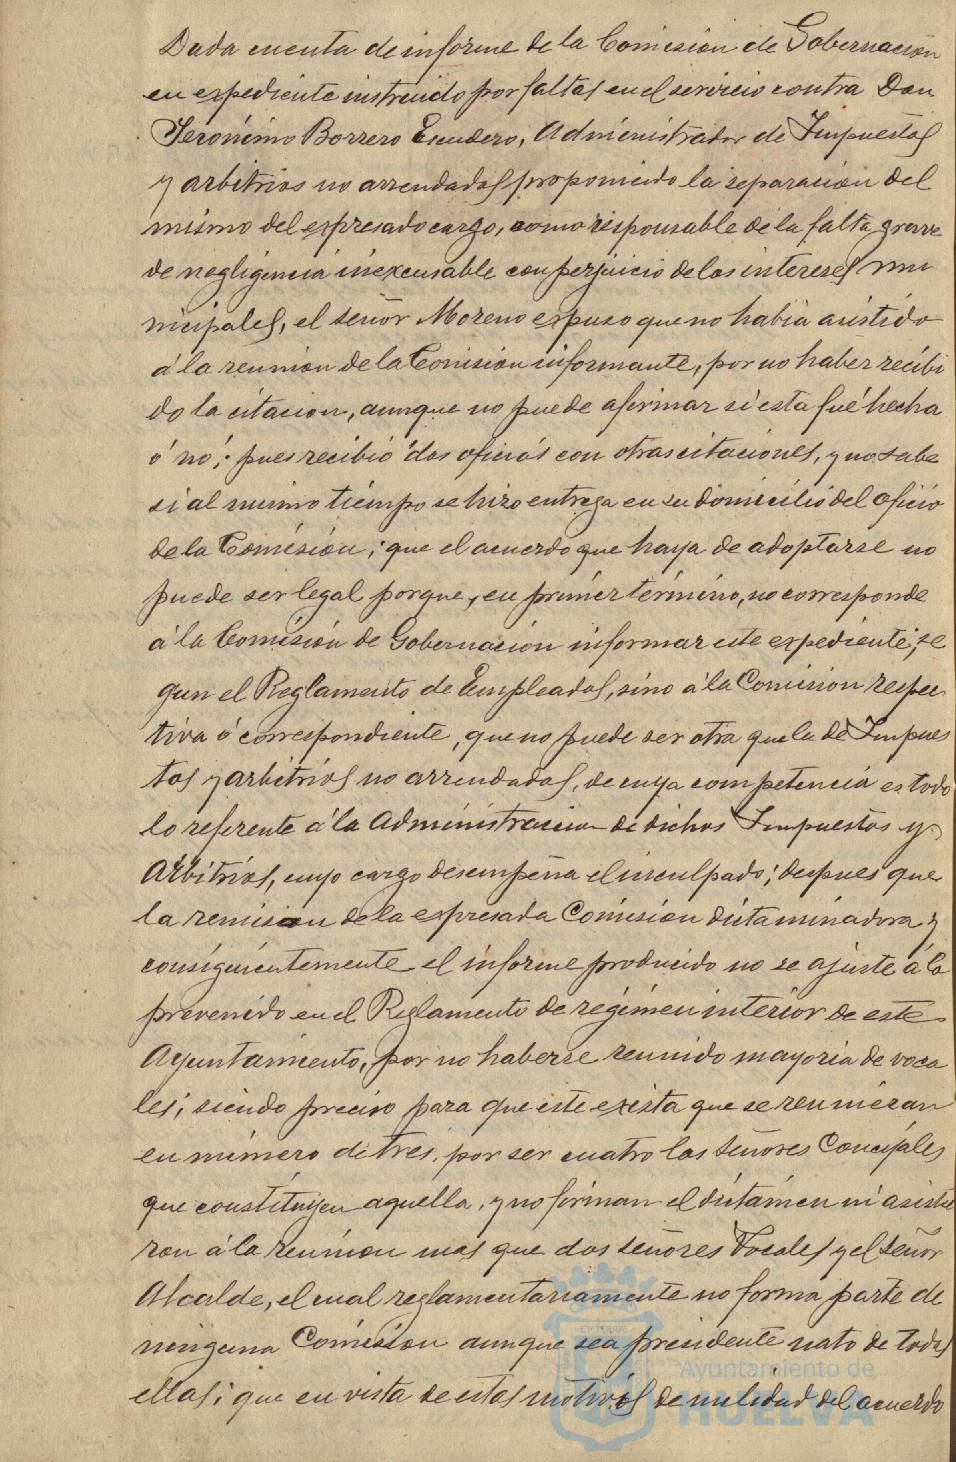 Dada cuenta de informe de la Comision de Gobernación
en expediente instruido por faltas en el servicio contra Don
Jerónimo Borrero Escudero, Administrador de Impuestos
y arbitrios no arrendados proponiendo la separacion del
mismo del espresado cargo, como responsable de la falta grave
de negligencia inexcusable con perjuicio de los intereses mu
nicipales, el señor Moreno espuso que no habia asistido
á la reunion de la Comision informante, por no haber recibi
do la citacion, aunque no puede afirmar si esta fué hecha
ó nó; pues recibió dos oficios con otras citaciones, y no sabe
si al mismo tiempo se hizo entrega en su domicilio del oficio
de la Comisión; que el acuerdo que haya de adoptarse no
puede ser legal porque, en primer término, no corresponde
á la Comisión de Gobernación informar este expediente, se
gun el Reglamento de Empleados, sino á la Comision respec
tiva ó correspondiente, que no puede ser otra que la de Impues
tos y arbitrios no arrendados, de cuya competencia es todo
lo referente á la Administracion de dichos Impuestos y
Arbitrios, cuyo cargo desempeña el inculpado; despues que
la remision de la espresada Comision dictaminadora y
consiguientemente el informe producido no se ajuste á lo
prevenido en el Reglamento de régimen interior de este
Ayuntamiento, por no haberse reunido mayoria de voca
les; siendo preciso para que este exista que se reunieran
en número de tres, por ser cuatro los señores Concejales
que constituyen aquella, y no firman el dictámen ni asistie
ron á la reunion mas que dos señores Vocales y el Señor
Alcalde, el cual reglamentariamente no forma parte de
ninguna Comision aunque sea presidente nato de todas
ellas; que en vista de estos motivos de nulidad del acuerdo
Ayuntamiento de
HUELVA